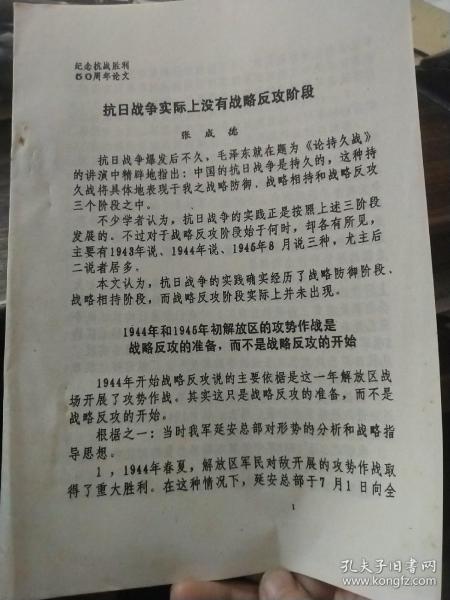 纪念抗战胜利
50周年论文
抗日战争实际上没有战略反攻阶段
张成德
抗日战争爆发后不久，毛泽东就在题为《论持久战》
的讲演中精辟地指出：中国的抗日战争是持久的，这种持
久战将具体地表现于我之战略防御、战略相持和战略反攻
三个阶段之中。
不少学者认为，抗日战争的实践正是按照上述三阶段
发展的。不过对于战略反攻阶段始于何时，却各有所见，
主要有1943年说、1944年说、1945年8月说三种，尤主后
二说者居多。
本文认为，抗日战争的实践确实经历了战略防御阶段、
战略相持阶段，而战略反攻阶段实际上并未出现。
1944年和1945年初解放区的攻势作战是
战略反攻的准备，而不是战略反攻的开始
1944年开始战略反攻说的主要依据是这一年解放区战
场开展了攻势作战。其实这只是战略反攻的准备，而不是
战略反攻的开始。
根据之一：当时我军延安总部对形势的分析和战略指
导思想。
1，1944年春夏，解放区军民对敌开展的攻势作战取
得了重大胜利。在这种情况下，延安总部于7月1日向全
1
孔夫子旧书网
www.kongfz.com